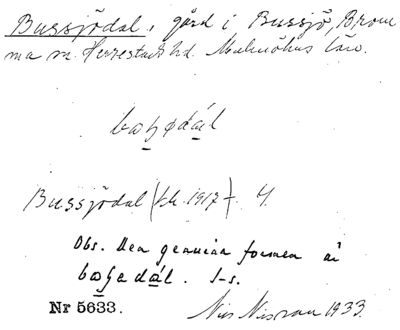 Bussjödal, gård i Bussjö, Brom
ma sn. Herrestads hd. Malmöhus län.
Bussjödal (1917)
Obs. Den genuina formen är
Nr 5633. Nils Nilsson 1933.